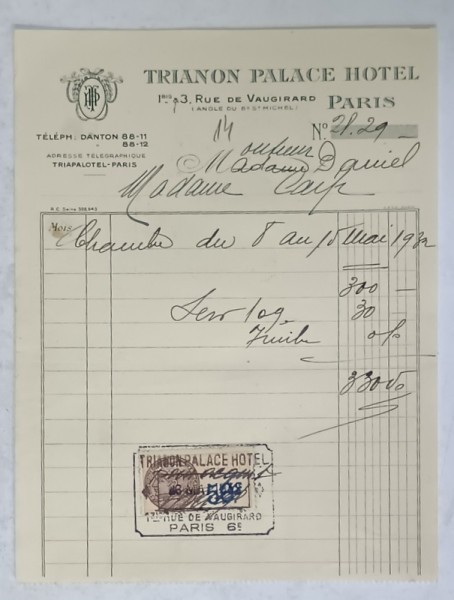 TRIANON PALACE HOTEL
1BIS & 3, RUE DE VAUGIRARD
(ANGLE DU BD ST MICHEL)
PARIS
TÉLÉPH: DANTON 88-11
88-12
ADRESSE TÉLÉGRAPHIQUE
TRIAPALOTEL-PARIS
14
No 28.29
Monsieur Daniel
Madame
R.C. Seine
Mois
Chambre du 8 au 15 Mai 1932
300 —
Serv 10% 30
Timbre
330 50
TRIANON PALACE HOTEL
RUE DE VAUGIRARD
PARIS 6E